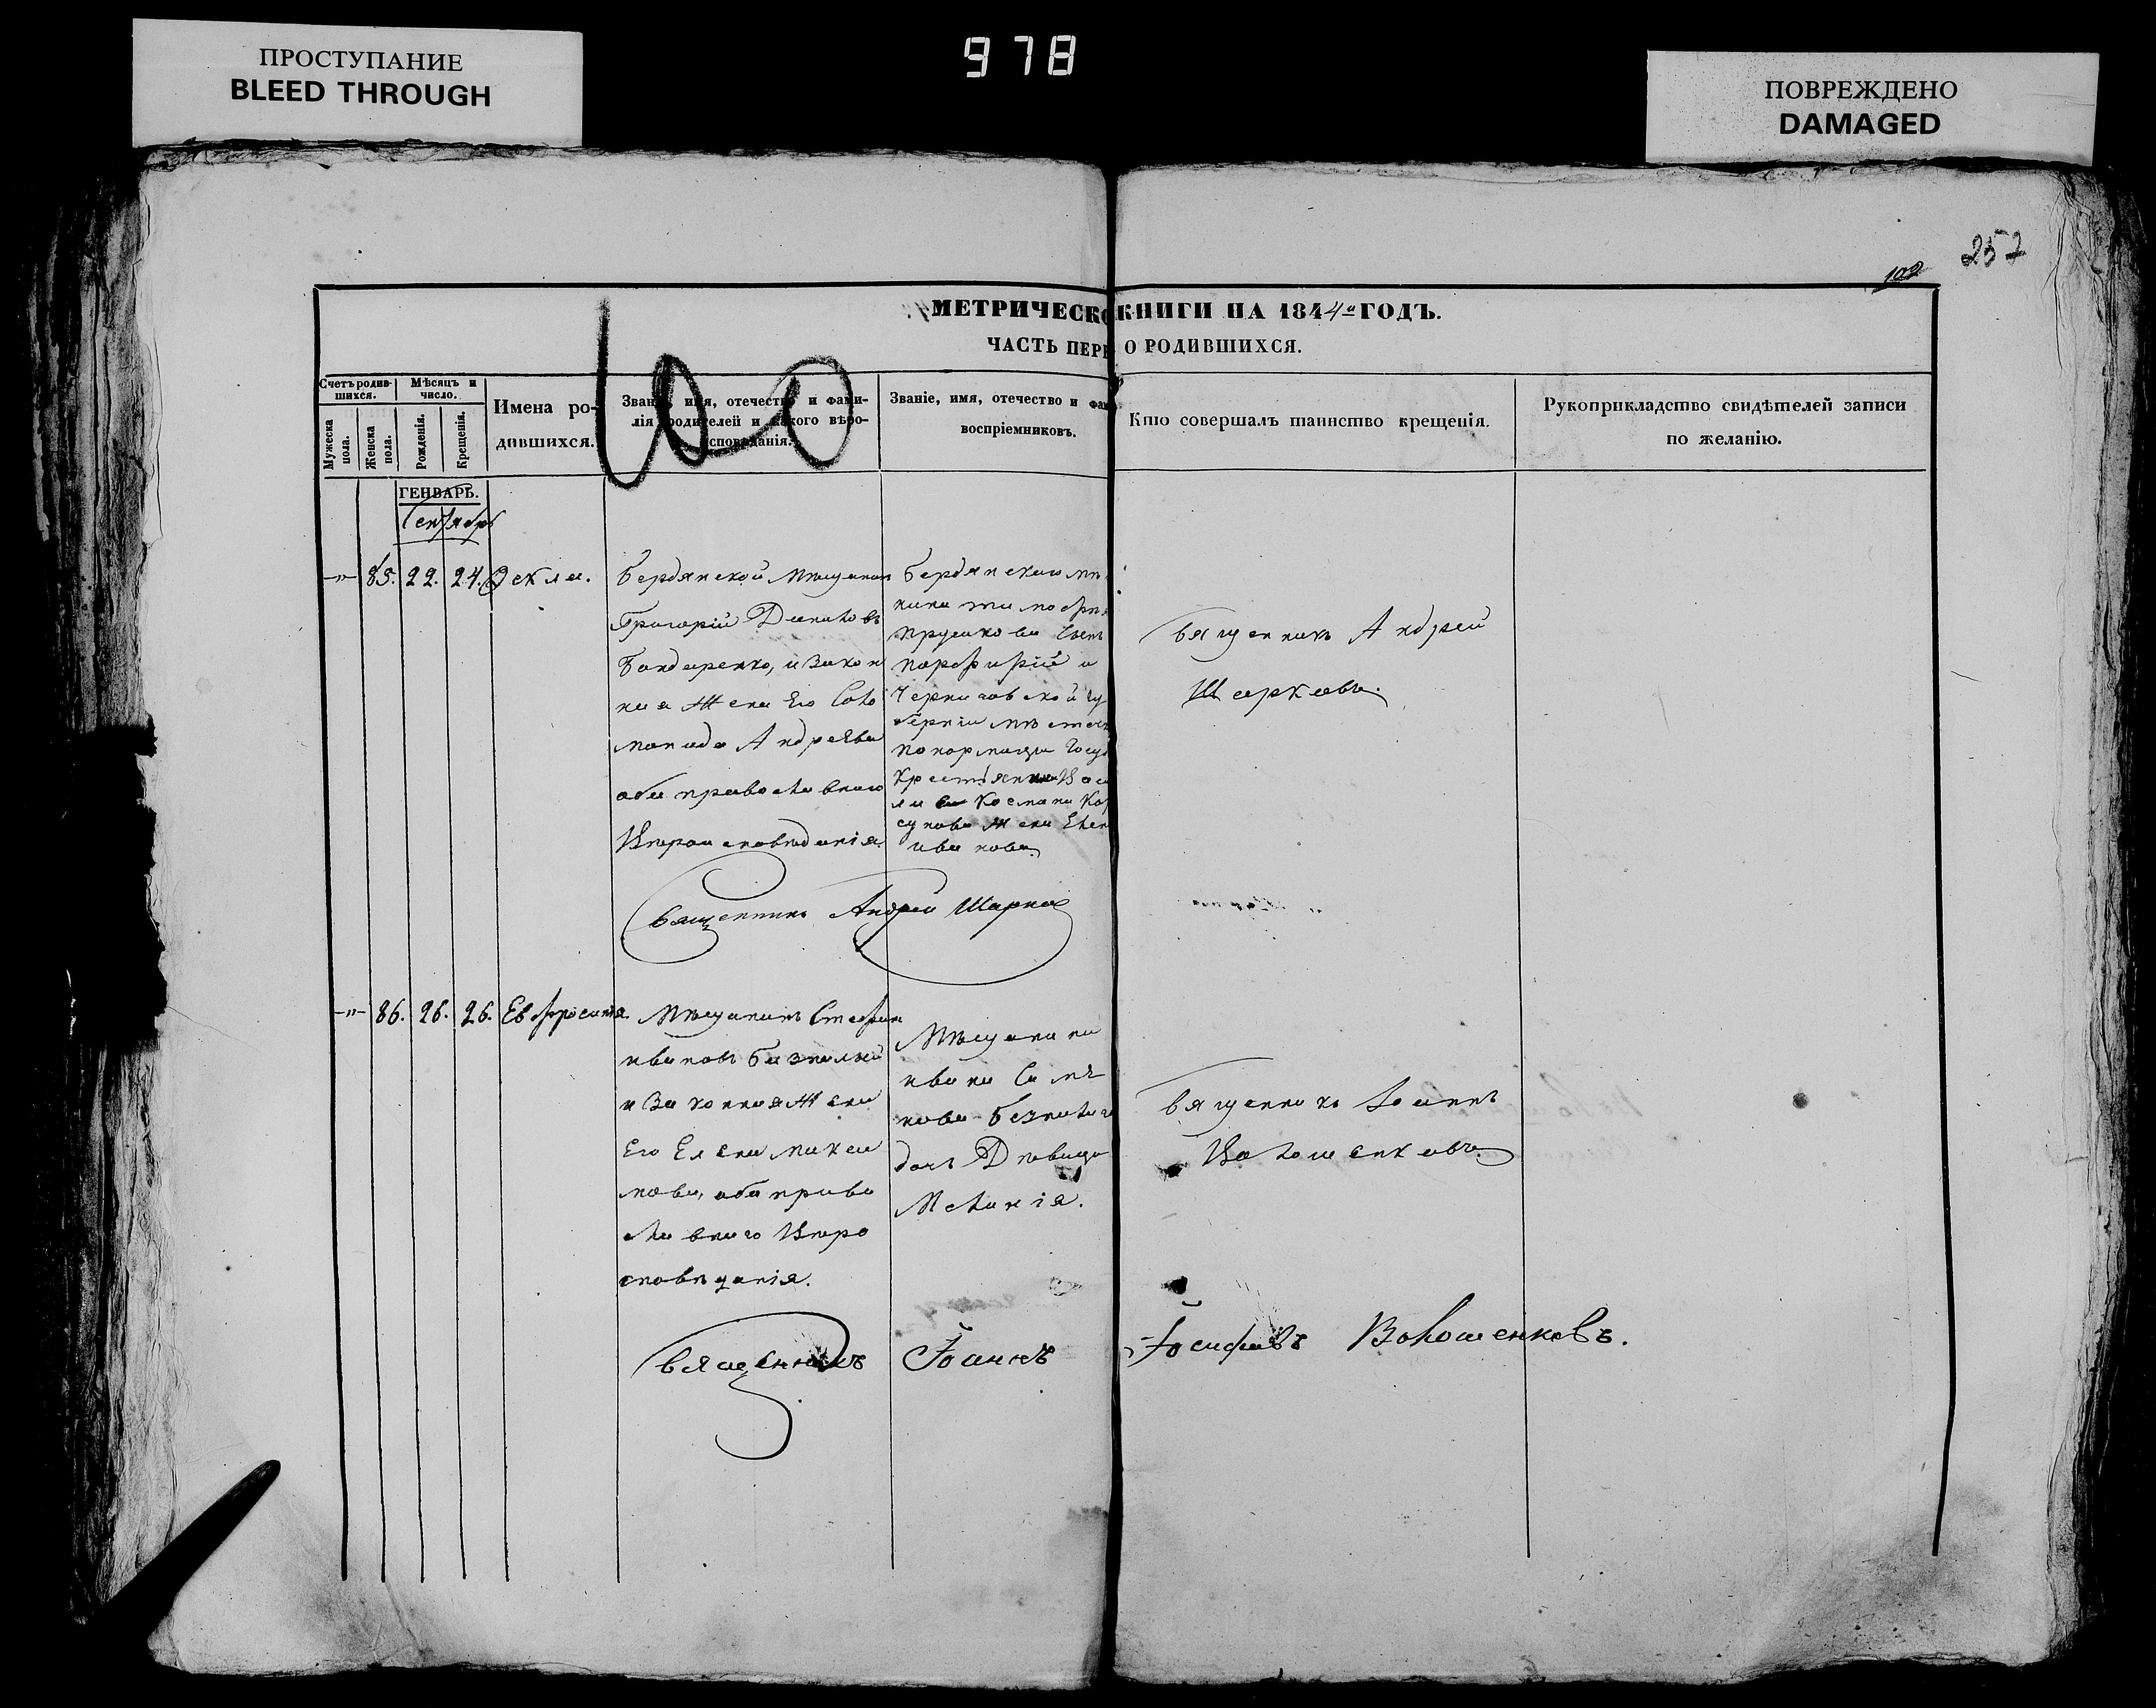 ПРОСТУПАНИЕ
BLEED THROUGH
978
ПОВРЕЖДЕНО
DAMAGED
257
102
МЕТРИЧЕСКО КНИГИ НА 1844 ГОДЪ.
ЧАСТЬ ПЕРВ О РОДИВШИХСЯ.
Счетъ родив-
шихся.
Мужеска
пола.
Женска
пола.
Мѣсяцъ и
число.
Рожденія.
Крещенія.
Имена ро-
дившихся.
Званіе, имя, отечество и фами-
лія родителей и какого вѣро-
исповѣданія.
Званіе, имя, отечество и фам
воспріемниковъ.
Кто совершалъ таинство крещенія.
Рукоприкладство свидѣтелей записи
по желанію.
ГЕНВАРЬ.
Сентябрь
-"- 85. 22. 24. Ѳекла.
Бердянской Мѣщанин
Григорій
Бондаренко, и закон
ная Жена Его Соло
монида Андреева
оба православнаго
Вѣроисповѣданія.
Бердянскаго мѣ
сынъ
порфирій и
Черниговской гу
берніи мѣстеч
Жена
иванова.
Священникъ Андрей
Шарковъ.
Священникъ Андрей Шарков
-"- 86. 26. 26. Евфросинія.
Мѣщанинъ Стефан
ивановъ
и Законная Жена
Его Елена макси
мова, оба право
славнаго Вѣро
исповѣданія.
Мѣщанина
ивана
дочь Дѣвица
Меланія.
Священникъ Іоаннъ
Волошенковъ.
Священникъ Іоаннъ Іосифовъ Волошенковъ.